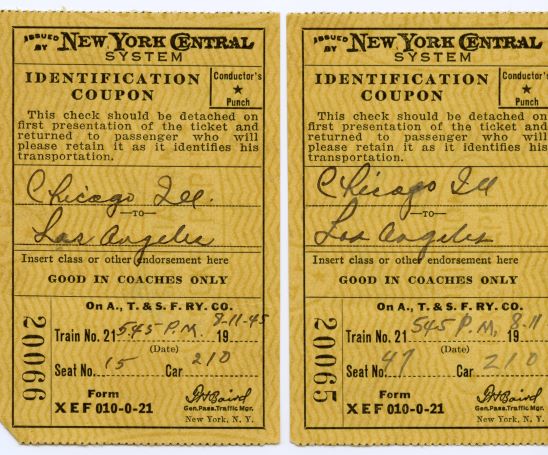 ISSUED BY NEW YORK CENTRAL
SYSTEM
IDENTIFICATION
COUPON
Conductor's
★
Punch
This check should be detached on
first presentation of the ticket and
returned to passenger who will
please retain it as it identifies his
transportation.
Chicago Ill.
—TO—
Los Angeles
Insert class or other endorsement here
GOOD IN COACHES ONLY
20066
On A., T. & S. F. RY. CO.
Train No. 21 545 P.M. 8-11-45 19
(Date)
Seat No. 15 Car 210
Form
XEF 010-0-21
Gen. Pass. Traffic Mgr.
New York, N. Y.
ISSUED BY NEW YORK CENTRAL
SYSTEM
IDENTIFICATION
COUPON
Conductor's
★
Punch
This check should be detached on
first presentation of the ticket and
returned to passenger who will
please retain it as it identifies his
transportation.
Chicago Ill
—TO—
Los Angeles
Insert class or other endorsement here
GOOD IN COACHES ONLY
20065
On A., T. & S. F. RY. CO.
Train No. 21 545 P.M. 8-11 19
(Date)
Seat No. 47 Car 210
Form
XEF 010-0-21
Gen. Pass. Traffic Mgr.
New York, N. Y.